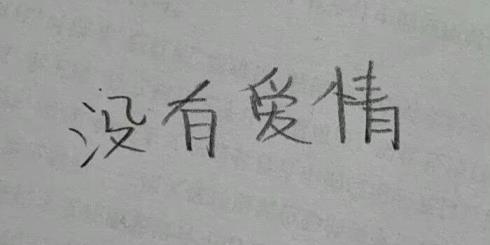 没有爱情